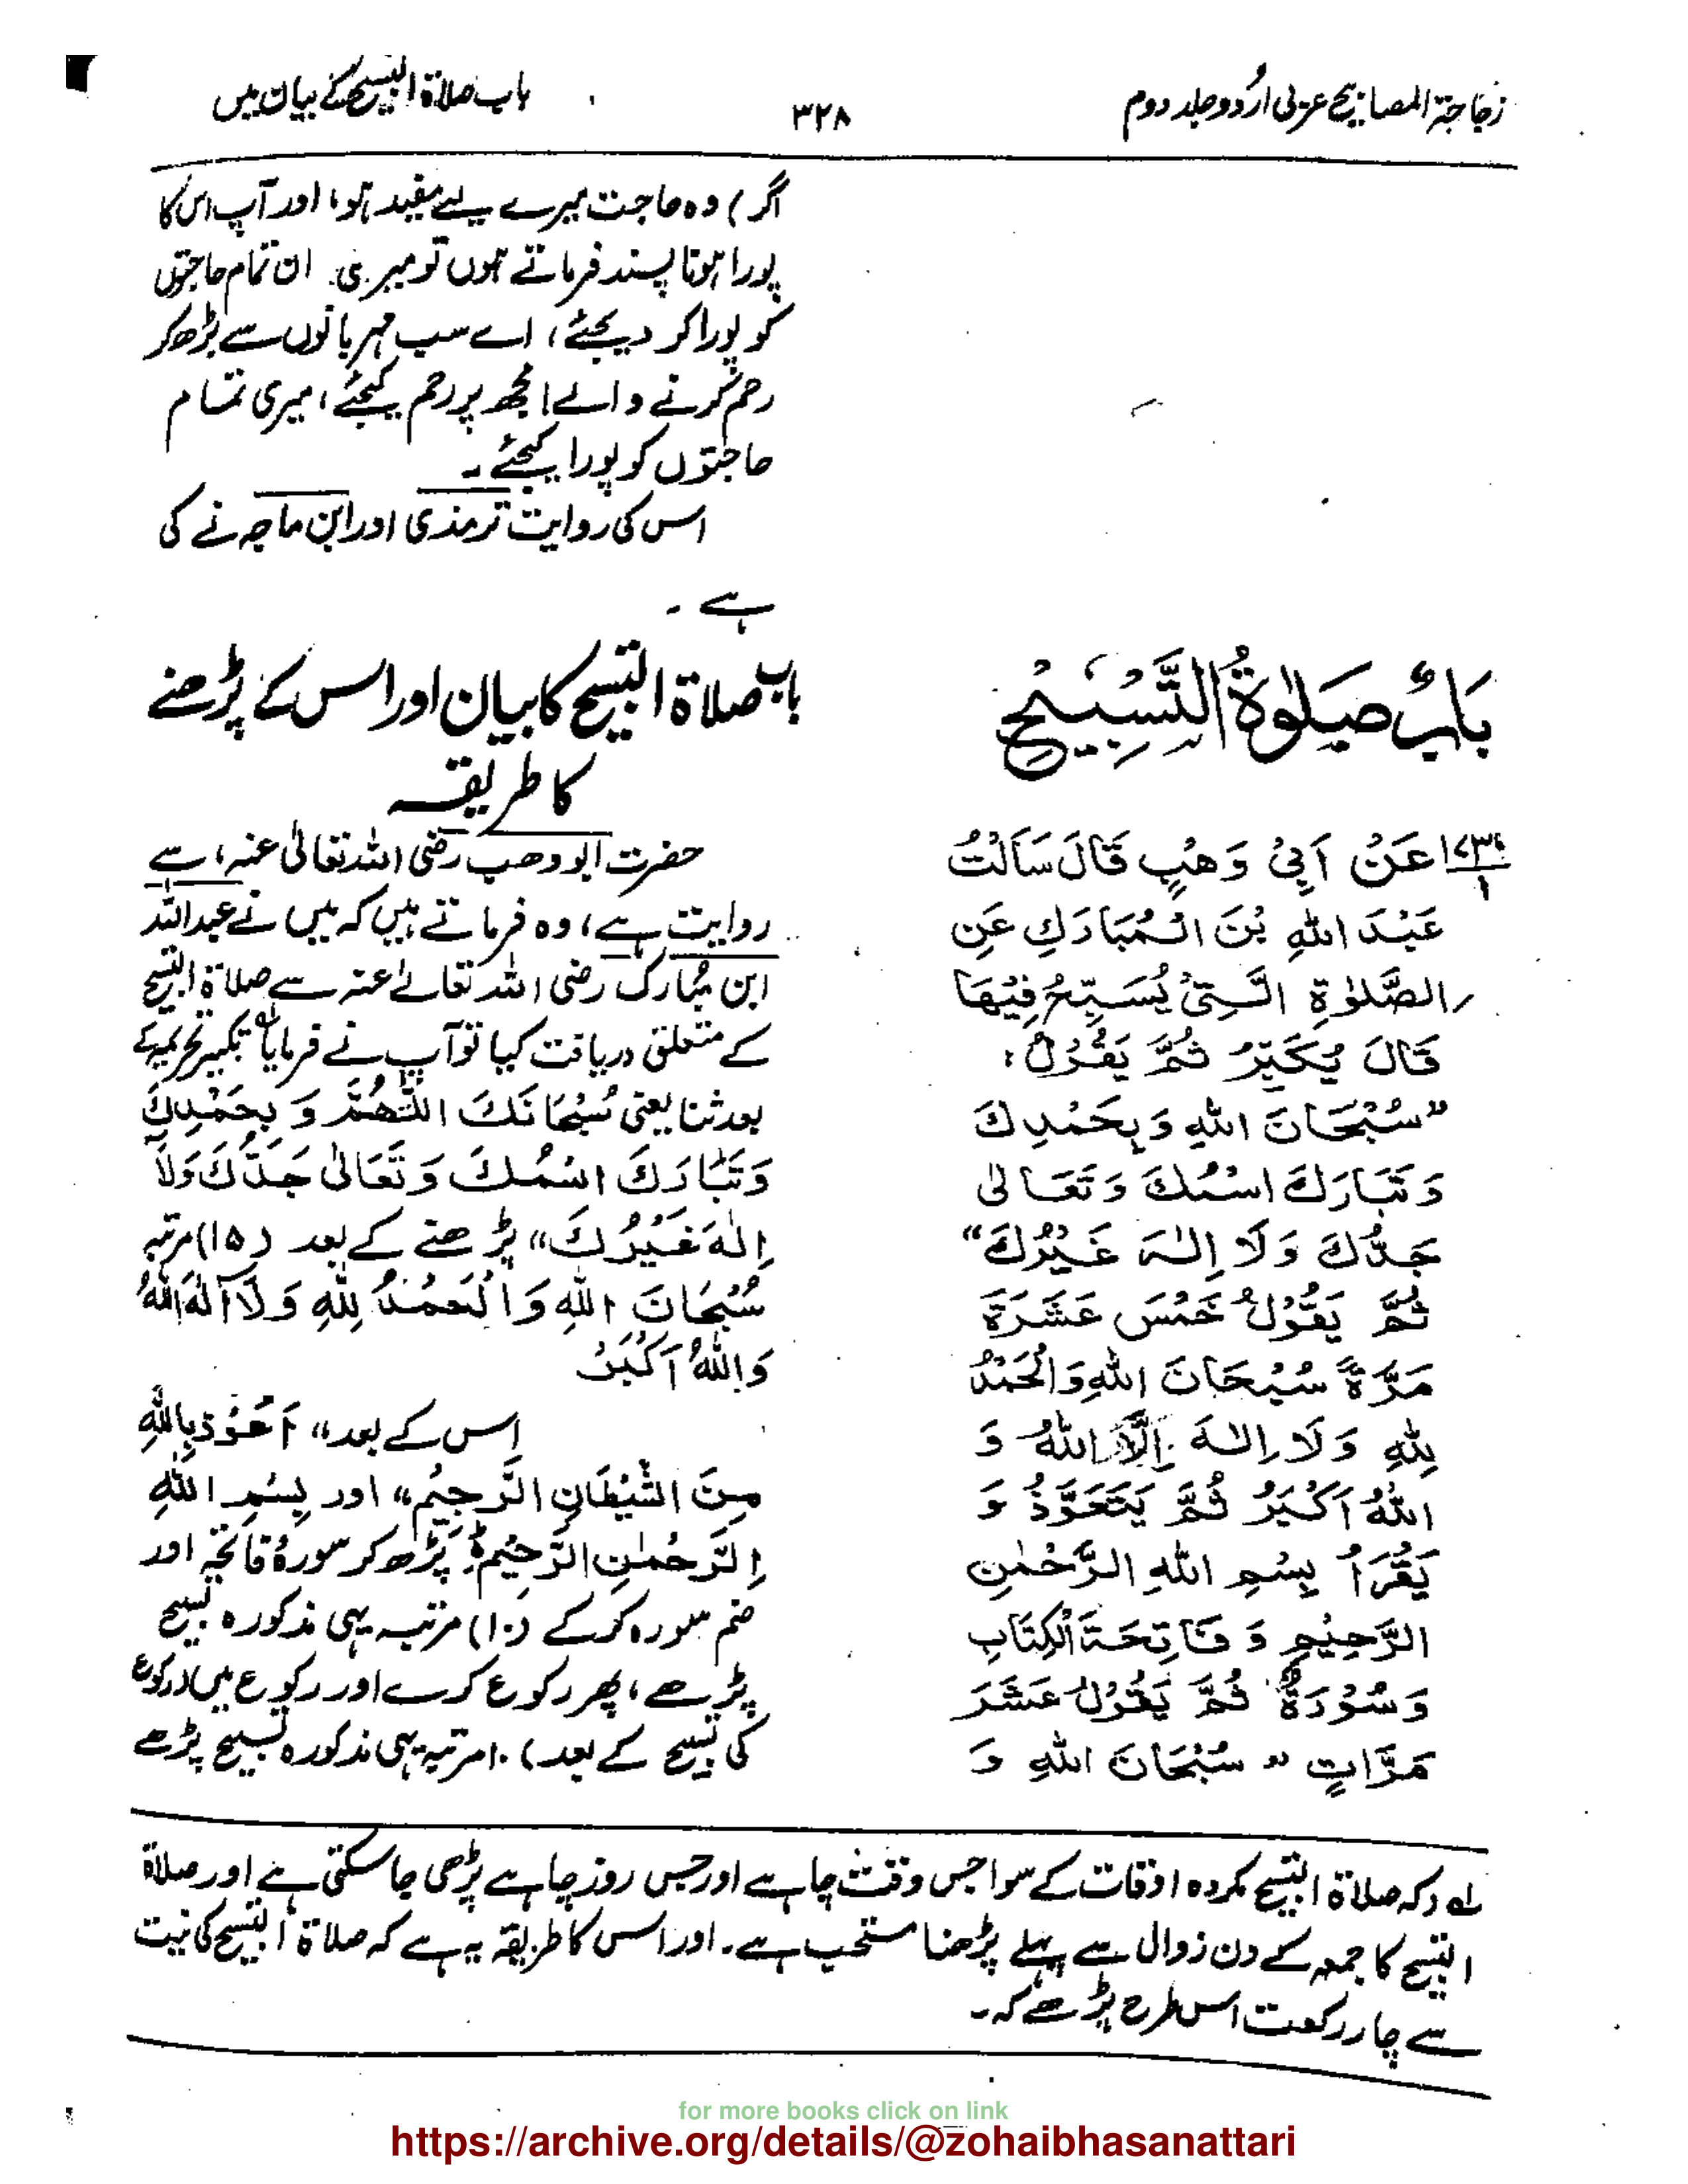 زجاجۃ المصابیح عربی اردو جلد دوم
۳۲۸
باب صلاۃ التسبیح کے بیان میں
اگر) وہ حاجت میرے لیے مفید ہو، اور آپ اس کا
پورا ہونا پسند فرماتے ہوں تو میری ان تمام حاجتوں
کو پورا کر دیجئے، اے سب مہربانوں سے بڑھ کر
رحم کرنے والے! مجھ پر رحم کیجئے، میری تمام
حاجتوں کو پورا کیجئے۔
اس کی روایت ترمذی اور ابن ماجہ نے کی
ہے۔
بَابُ صَلٰوةِ التَّسْبِيْحِ
عَنْ اَبِيْ وَهْبٍ قَالَ سَاَلْتُ
عَبْدَ اللهِ بْنَ الْمُبَارَكِ عَنِ
الصَّلٰوةِ الَّتِيْ يُسَبِّحُ فِيْهَا
قَالَ يُكَبِّرُ ثُمَّ يَقُوْلُ:
"سُبْحَانَ اللهِ وَبِحَمْدِكَ
وَتَبَارَكَ اسْمُكَ وَتَعَالٰى
جَدُّكَ وَلَا اِلٰهَ غَيْرُكَ"
ثُمَّ يَقُوْلُ خَمْسَ عَشَرَةَ
مَرَّةً سُبْحَانَ اللهِ وَالْحَمْدُ
لِلّٰهِ وَلَا اِلٰهَ اِلَّا اللهُ وَ
اللهُ اَكْبَرُ ثُمَّ يَتَعَوَّذُ وَ
يَقْرَاُ بِسْمِ اللهِ الرَّحْمٰنِ
الرَّحِيْمِ وَفَاتِحَةَ الْكِتَابِ
وَسُوْرَةً ثُمَّ يَقُوْلُ عَشَرَ
مَرَّاتٍ "سُبْحَانَ اللهِ وَ
باب صلاۃ التسبیح کا بیان اور اس کے پڑھنے
کا طریقہ
حضرت ابو وھب رضی اللہ تعالیٰ عنہ، سے
روایت ہے، وہ فرماتے ہیں کہ میں نے عبداللہ
ابن مبارک رضی اللہ تعالےٰ عنہ سے صلاۃ التسبیح
کے متعلق دریافت کیا تو آپ نے فرمایا تکبیر تحریمہ کے
بعد ثنا یعنی سُبْحَانَكَ اللّٰهُمَّ وَ بِحَمْدِكَ
وَتَبَارَكَ اسْمُكَ وَ تَعَالٰى جَدُّكَ وَلَا
اِلٰهَ غَيْرُكَ" پڑھنے کے بعد (۱۵) مرتبہ
سُبْحَانَ اللهِ وَالْحَمْدُ لِلّٰهِ وَلَا اِلٰهَ اِلَّا اللهُ
وَاللهُ اَكْبَرُ
اس کے بعد "اَعُوْذُ بِاللهِ
مِنَ الشَّيْطَانِ الرَّجِيْمِ" اور بِسْمِ اللهِ
الرَّحْمٰنِ الرَّحِيْمِ پڑھ کر سورۂ فاتحہ اور
ضم سورہ کر کے (۱۰) مرتبہ یہی مذکورہ تسبیح
پڑھے، پھر رکوع کرے اور رکوع میں (رکوع
کی تسبیح کے بعد) ۱۰ مرتبہ یہی مذکورہ تسبیح پڑھے
لے کہ صلاۃ التسبیح مکروہ اوقات کے سوا جس وقت چاہے اور جس روز چاہے پڑھی جا سکتی ہے اور صلاۃ
التسبیح کا جمعہ کے دن زوال سے پہلے پڑھنا مستحب ہے۔ اور اس کا طریقہ یہ ہے کہ صلاۃ التسبیح کی نیت
سے چار رکعت اس طرح پڑھے کہ۔
for more books click on link
https://archive.org/details/@zohaibhasanattari